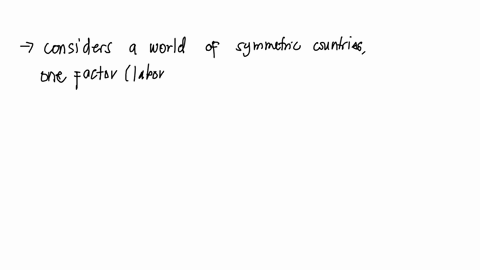 → considers a world of symmetric countries,
one factor (labor